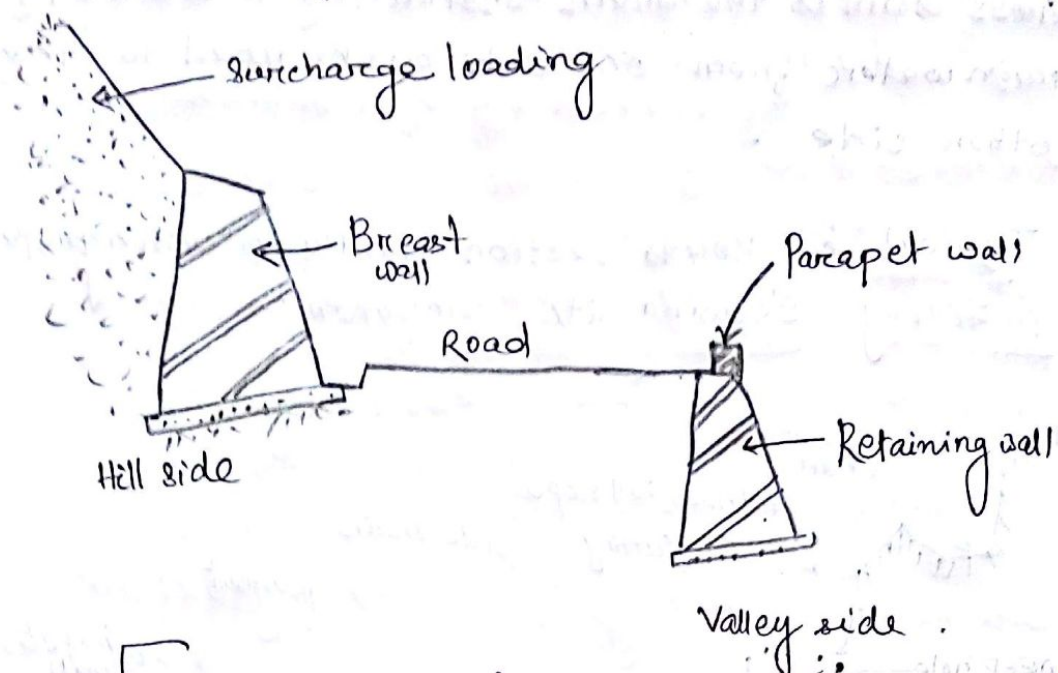 surcharge loading
Breast
wall
Parapet wall
Road
Retaining wall
Hill side
Valley side.